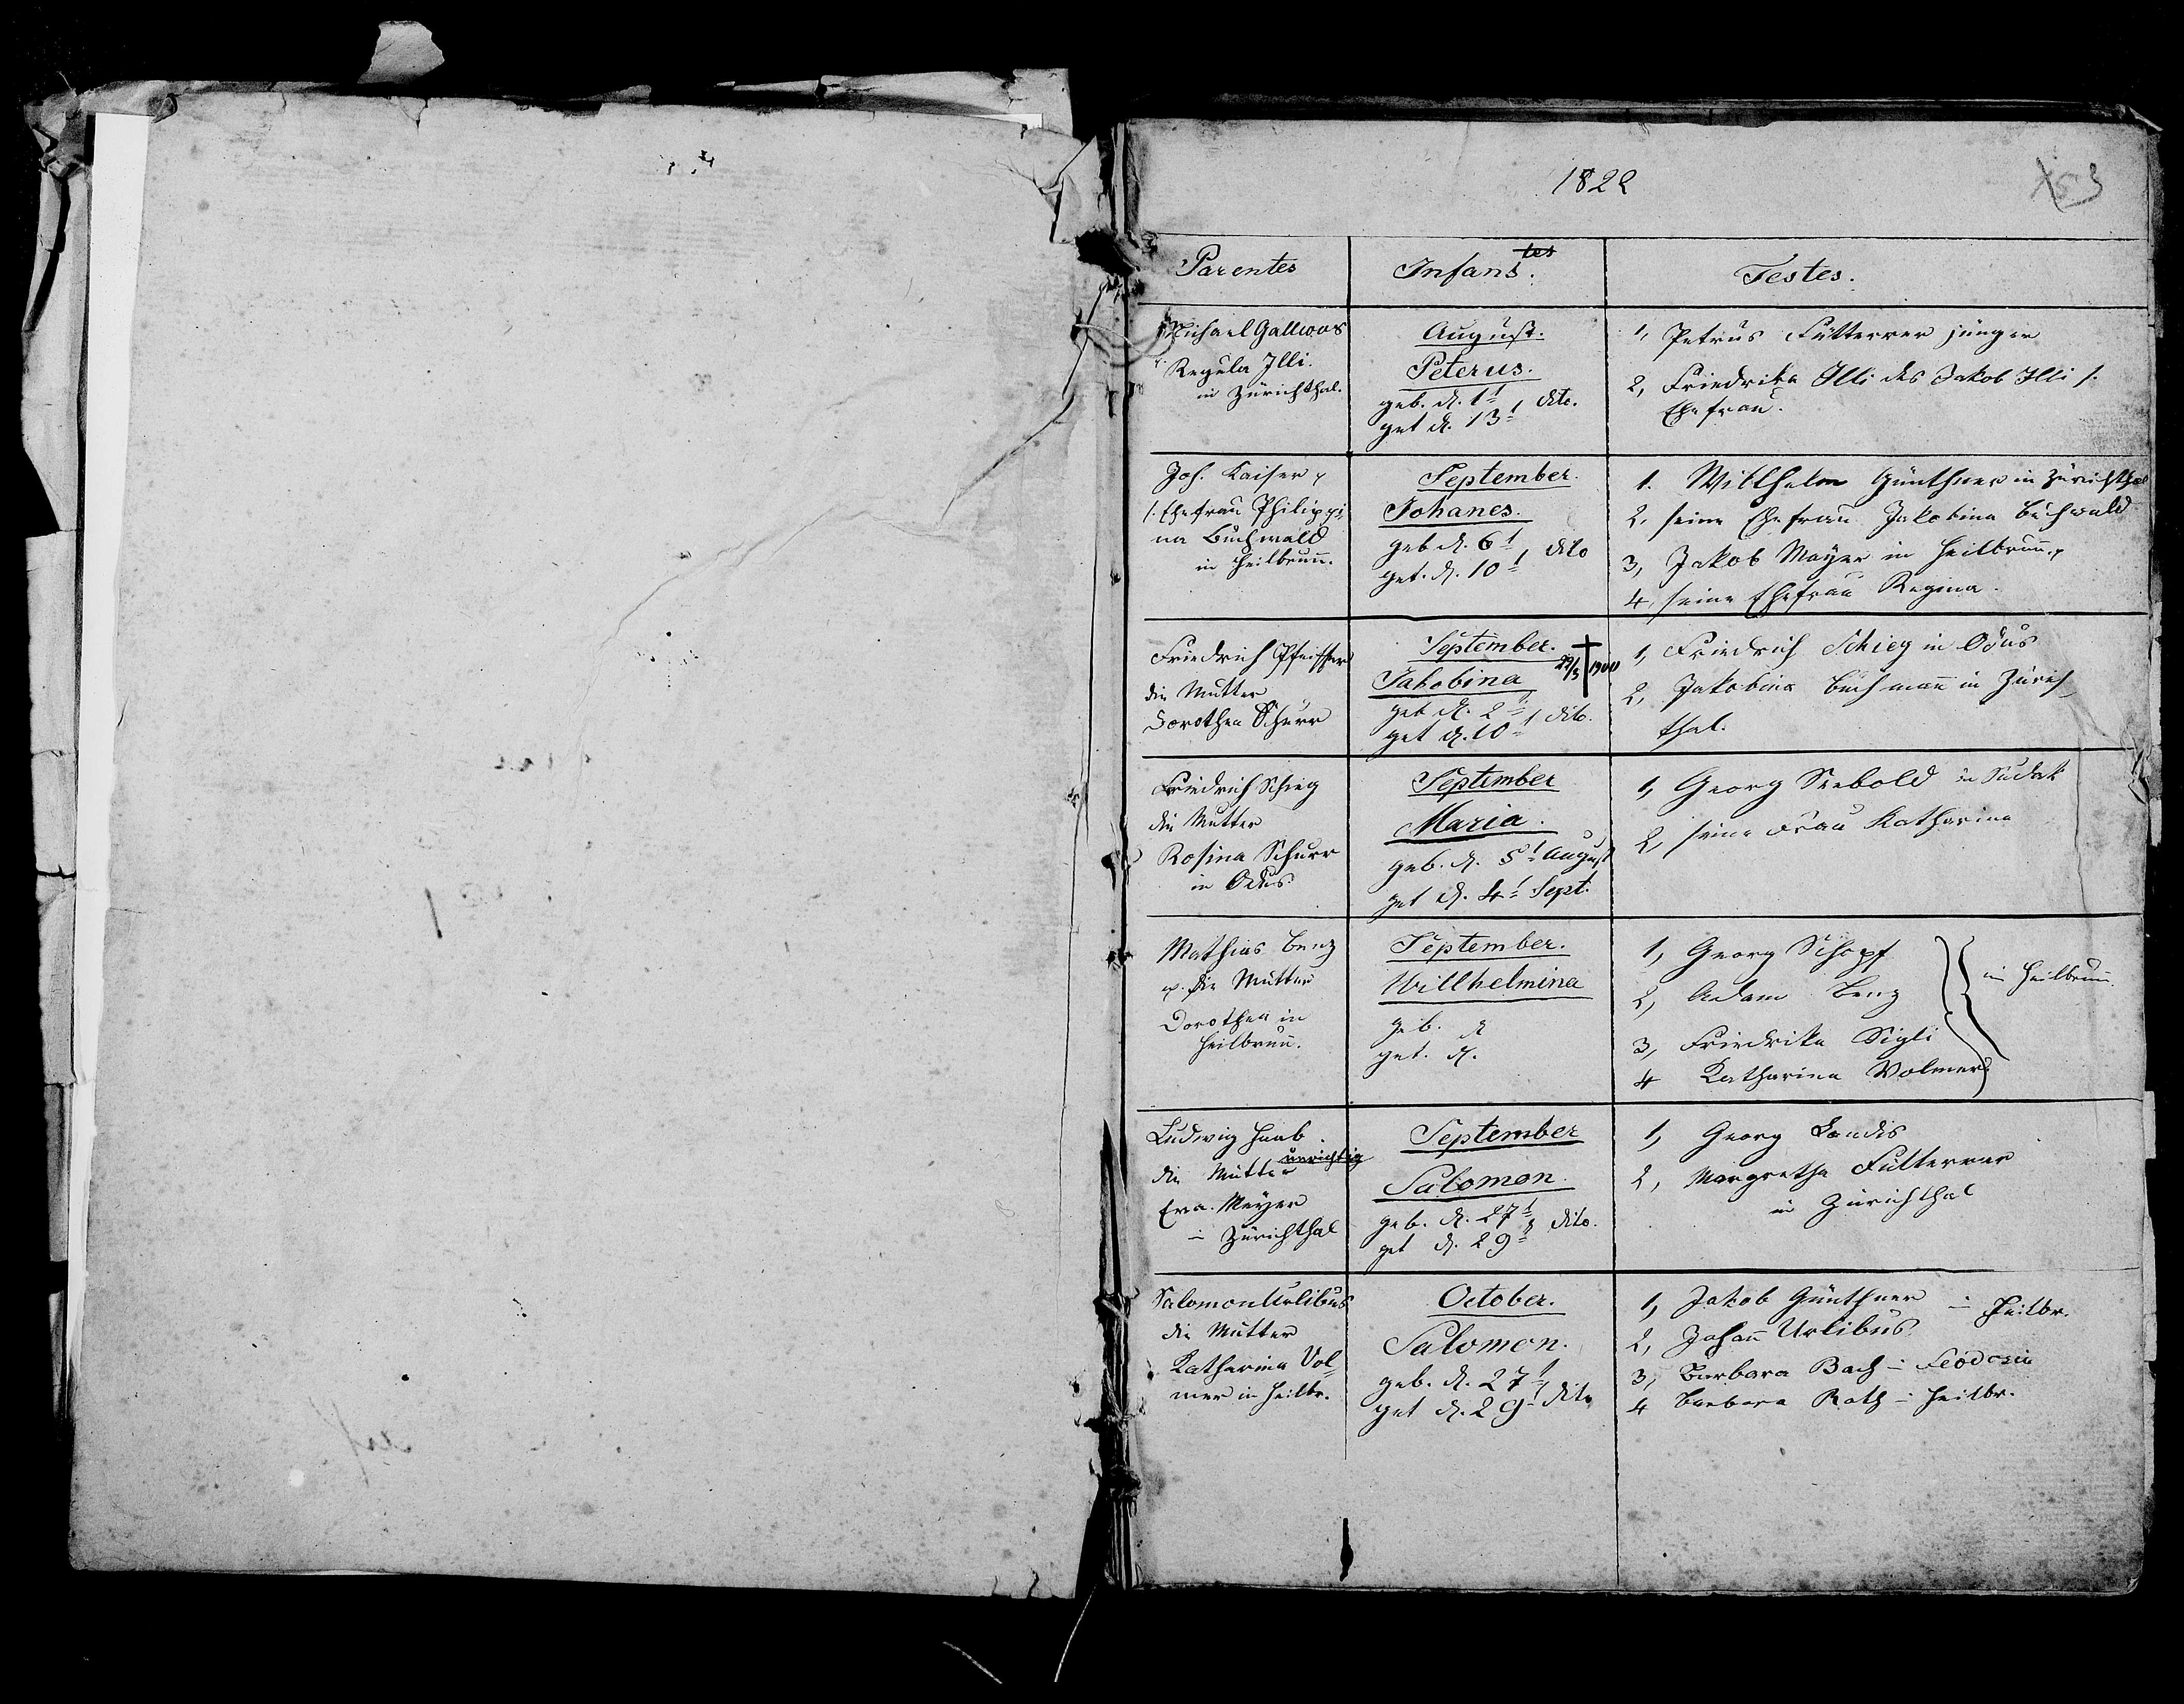 1822
Parentes Infans.tes Testes.
Michael Gallwas
Regula Illi.
in Zürichthal.
August.
Peterus.
geb. d. 1t
get d. 13t dito.
1, Petrus Futterer jünger
2, Friedrika Illi des Jakob Illi s.
Ehefrau.
Joh. Kaiser
s. Ehefrau Philippi,
na Buchwald
in Heilbrunn.
September.
Johanes.
geb d. 6t
get. d. 10t dito
1. Willhelm Günthner in Zürichthal
2, seine Ehefrau Jakobina Buchwald
3, Jakob Mayer in Heilbrunn
4, seine Ehefrau Regina.
Friedrich Pfeiffer
die Mutter
Dorothea Schurr
September.
Jakobina 22/3 † 1900
geb d. 2t
get d. 10t dito.
1, Friedrich Schieg in Odus
2, Jakobina Buchmann in Zürich
thal.
Friedrich Schieg
die Mutter
Rosina Schurr
in Odus.
September
Maria.
geb. d. 5t August
get d. 4t Sept.
1, Georg Seebold in Sudak
2, seine Frau Katharina
Mathias Benz
u. die Mutter
Dorothea in
Heilbrunn.
September.
Willhelmina
geb. d
get. d.
1, Georg Schopf
2, Adam Benz
3, Friedrika Sigli
4 Katharina Volmer
in Heilbrunn.
Ludwig Haab.
die Mutter unrichtig
Eva Meyer
in Zürichthal
September
Salomon.
geb. d. 27t
get d. 29t dito.
1, Georg Landis
2, Margretha Futterer
in Zürichthal
Salomon Urlibus
die Mutter
Katharina Vol=
mer in Heilbr.
October.
Salomon.
geb. d. 27t
get d. 29t dito
1, Jakob Günthner in Heilbr.
2, Johann Urlibus.
3, Barbara Bach in Feodosia
4 Barbara Roth in Heilbr.